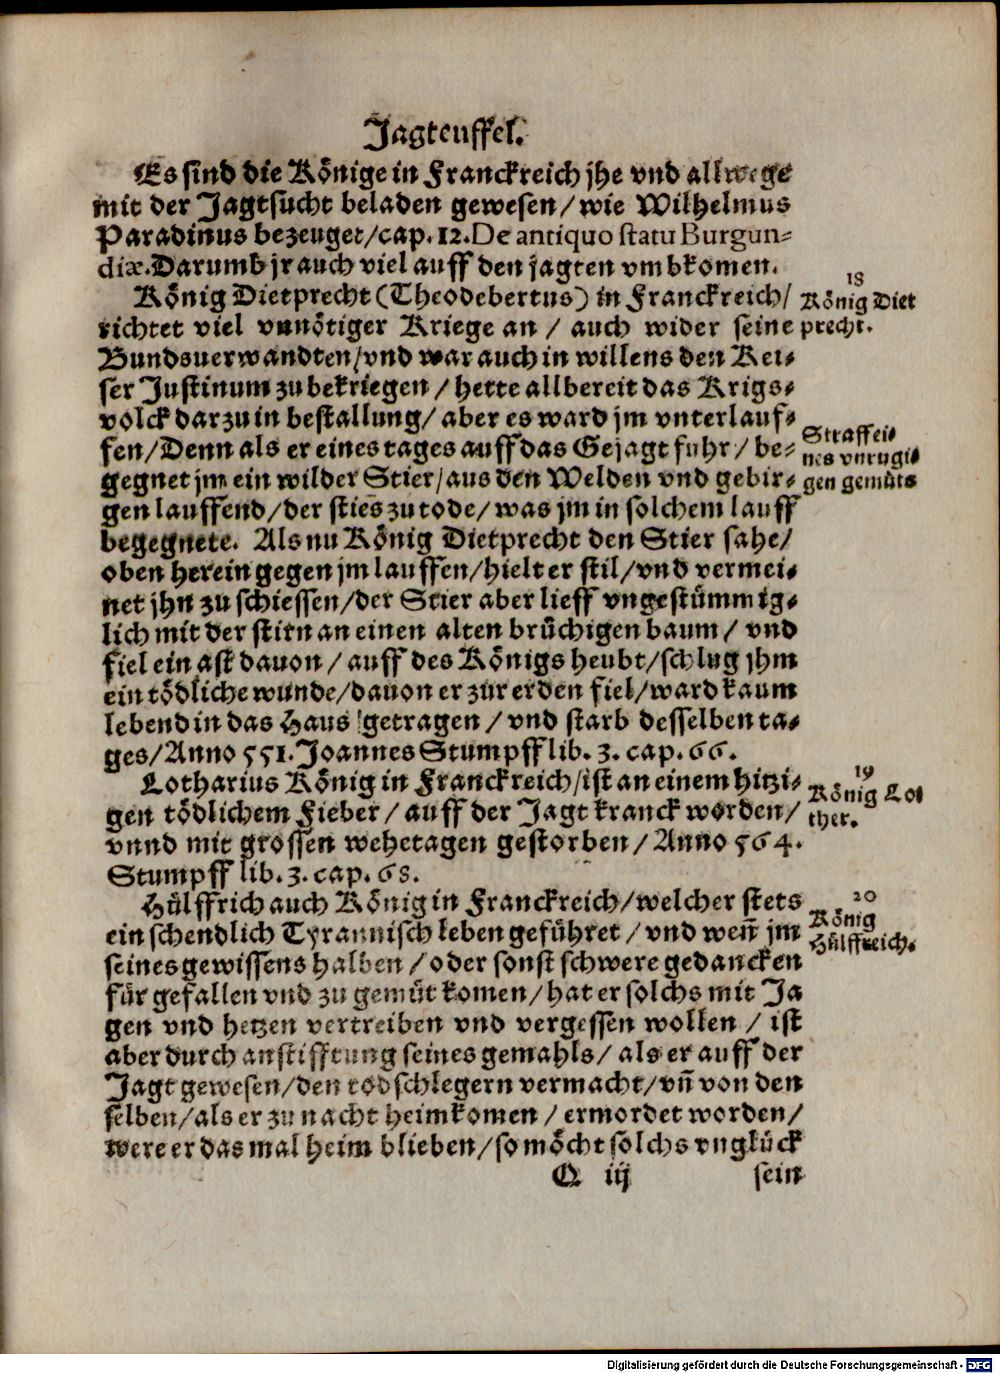 Jagteuffel.
Es sind die Könige in Franckreich jhe vnd allwege
mit der Jagtsucht beladen gewesen/ wie Wilhelmus
Paradinus bezeuget/cap. 12. De antiquo statu Burgun-
diæ. Darumb jr auch viel auff den jagten vmbkomen.
König Dietprecht (Theodebertus) in Franckreich/
richtet viel vnnötiger Kriege an / auch wider seine
Bundsuerwandten/vnd war auch in willens den Kei-
ser Justinum zu bekriegen / hette allbereit das Krigs-
volck darzu in bestallung/ aber es ward jm vnterlauf-
fen/Denn als er eines tages auff das Gejagt fuhr/ be-
gegnet jm ein wilder Stier/aus den Welden vnd gebir-
gen lauffend/der sties zu tode/ was jm in solchem lauff
begegnete. Als nu König Dietprecht den Stier sahe/
oben herein gegen jm lauffen/hielt er stil/vnd vermei-
net jhn zu schiessen/der Stier aber lieff vngestümmig-
lich mit der stirn an einen alten brüchigen baum/ vnd
fiel ein ast dauon / auff des Königs heubt/schlug jhm
ein tödliche wunde/dauon er zur erden fiel/ward kaum
lebend in das Haus getragen / vnd starb desselben ta-
ges/Anno 551. Joannes Stumpff lib. 3. cap. 66.
Lotharius König in Franckreich/ist an einem hitzi-
gen tödlichem Fieber / auff der Jagt kranck worden/
vnnd mit grossen wehetagen gestorben/ Anno 564.
Stumpff lib. 3. cap. 68.
Hülffrich auch König in Franckreich/welcher stets
ein schendlich Tyrannisch leben geführet / vnd weñ jm
seines gewissens halben / oder sonst schwere gedancken
für gefallen vnd zu gemüt komen/ hat er solchs mit Ja
gen vnd hetzen vertreiben vnd vergessen wollen / ist
aber durch anstifftung seines gemahls/ als er auff der
Jagt gewesen/den todschlegern vermacht/vñ von den
selben/als er zu nacht heimkomen / ermordet worden/
were er das mal heim blieben/so möcht solchs vnglück
Q iij
sein
18
König Diet
precht.
Straff ei-
nes vnrugi-
gen gemüts
19
König Lot
ther.
20
König
Hülffreich.
Digitalisierung gefördert durch die Deutsche Forschungsgemeinschaft - DFG